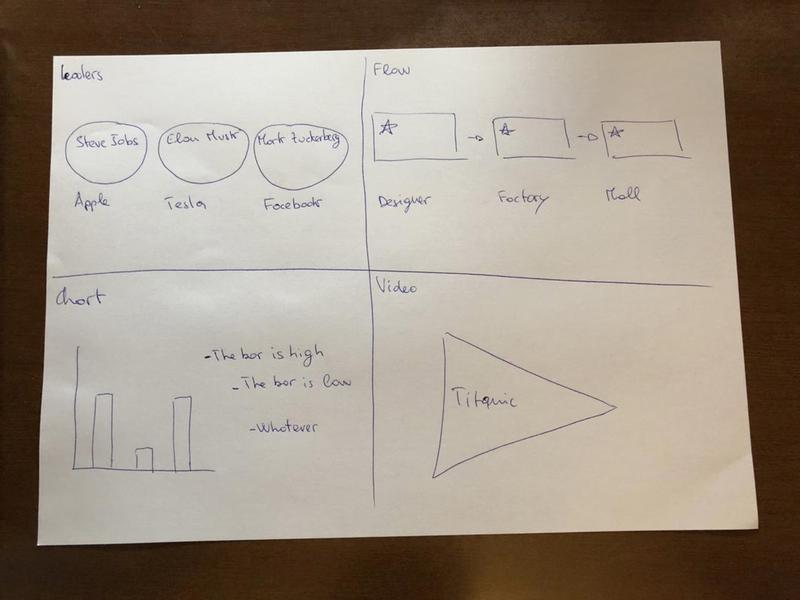 Leaders
Steve Jobs
Elon Musk
Mark Zuckerberg
Apple
Tesla
Facebook
Flow
Designer
Factory
Mall
Chart
-The bar is high
-The bar is low
-Whatever
Video
Titanic